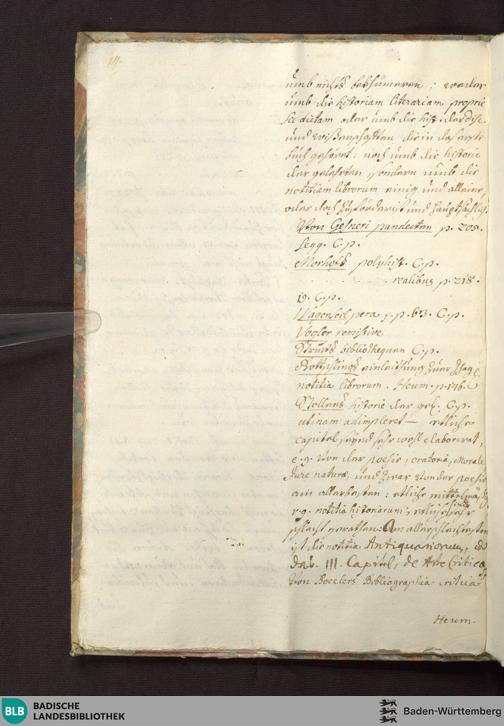 umb nichts bekümmern; weder
umb die historiam literariam proprie
sic dictam oder umb die hist. der disc.
und wißenschafften die in das erste
buch gehöret; noch umb die historie
der gelehrten, sondern umb die
notitiam librorum einig und alleine,
oder doch
Von Gesneri pandecten p. 208.
seqq. C. p.
Morhofs polyhist. C. p.
realibus p. 218.
19. C. p.
Wagenseil pera p. p. 63. C. p.
Vogler remissive
Struvs bibliothequen C. p.
einleitung zur
notitia librorum. Heum. p. 176.
Stollens historie der gel. C. p.
utinam adimpleret — etliche
capitel sind sehr wohl elaborirt,
e. g. von der poesie, oratorie, Morale
Jure naturæ, und zwar von der poesie
am allerbesten; etliche mittelmäßig
v. g. notitia historiarum; etliche sehr
schlecht gerathen: Am allerschlechtesten
ist die notitia Antiquariorum,
das III. Capitul, de Arte Critica,
Von Boeclers Bibliographia critica
Heum.
BLB
BADISCHE
LANDESBIBLIOTHEK
Baden-Württemberg